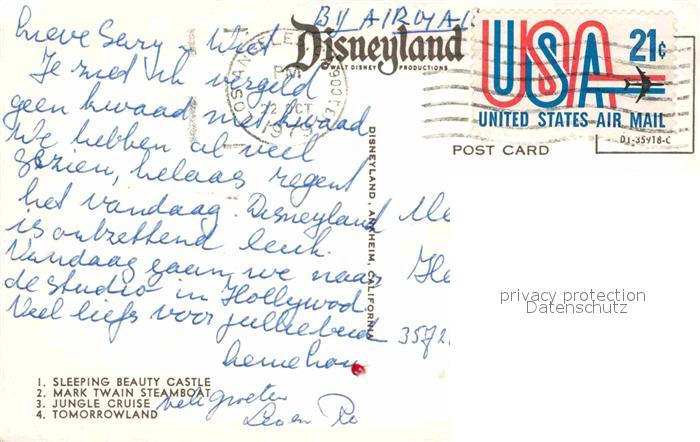 BY AIRMAIL
Lieve
Je ziet ik vergeld
geen kwaad met kwaad
We hebben al veel
gezien, helaas regent
het vandaag. Disneyland
is ontzettend leuk.
Vandaag gaan we naar
de studio in Hollywood
Veel liefs voor jullie
vele groeten
Disneyland
WALT DISNEY PRODUCTIONS
LOS ANGELES
PM
22 OCT
USA 21¢
UNITED STATES AIR MAIL
POST CARD
DT-35918-C
DISNEYLAND, ANAHEIM, CALIFORNIA
3572
1. SLEEPING BEAUTY CASTLE
2. MARK TWAIN STEAMBOAT
3. JUNGLE CRUISE
4. TOMORROWLAND
privacy protection
Datenschutz